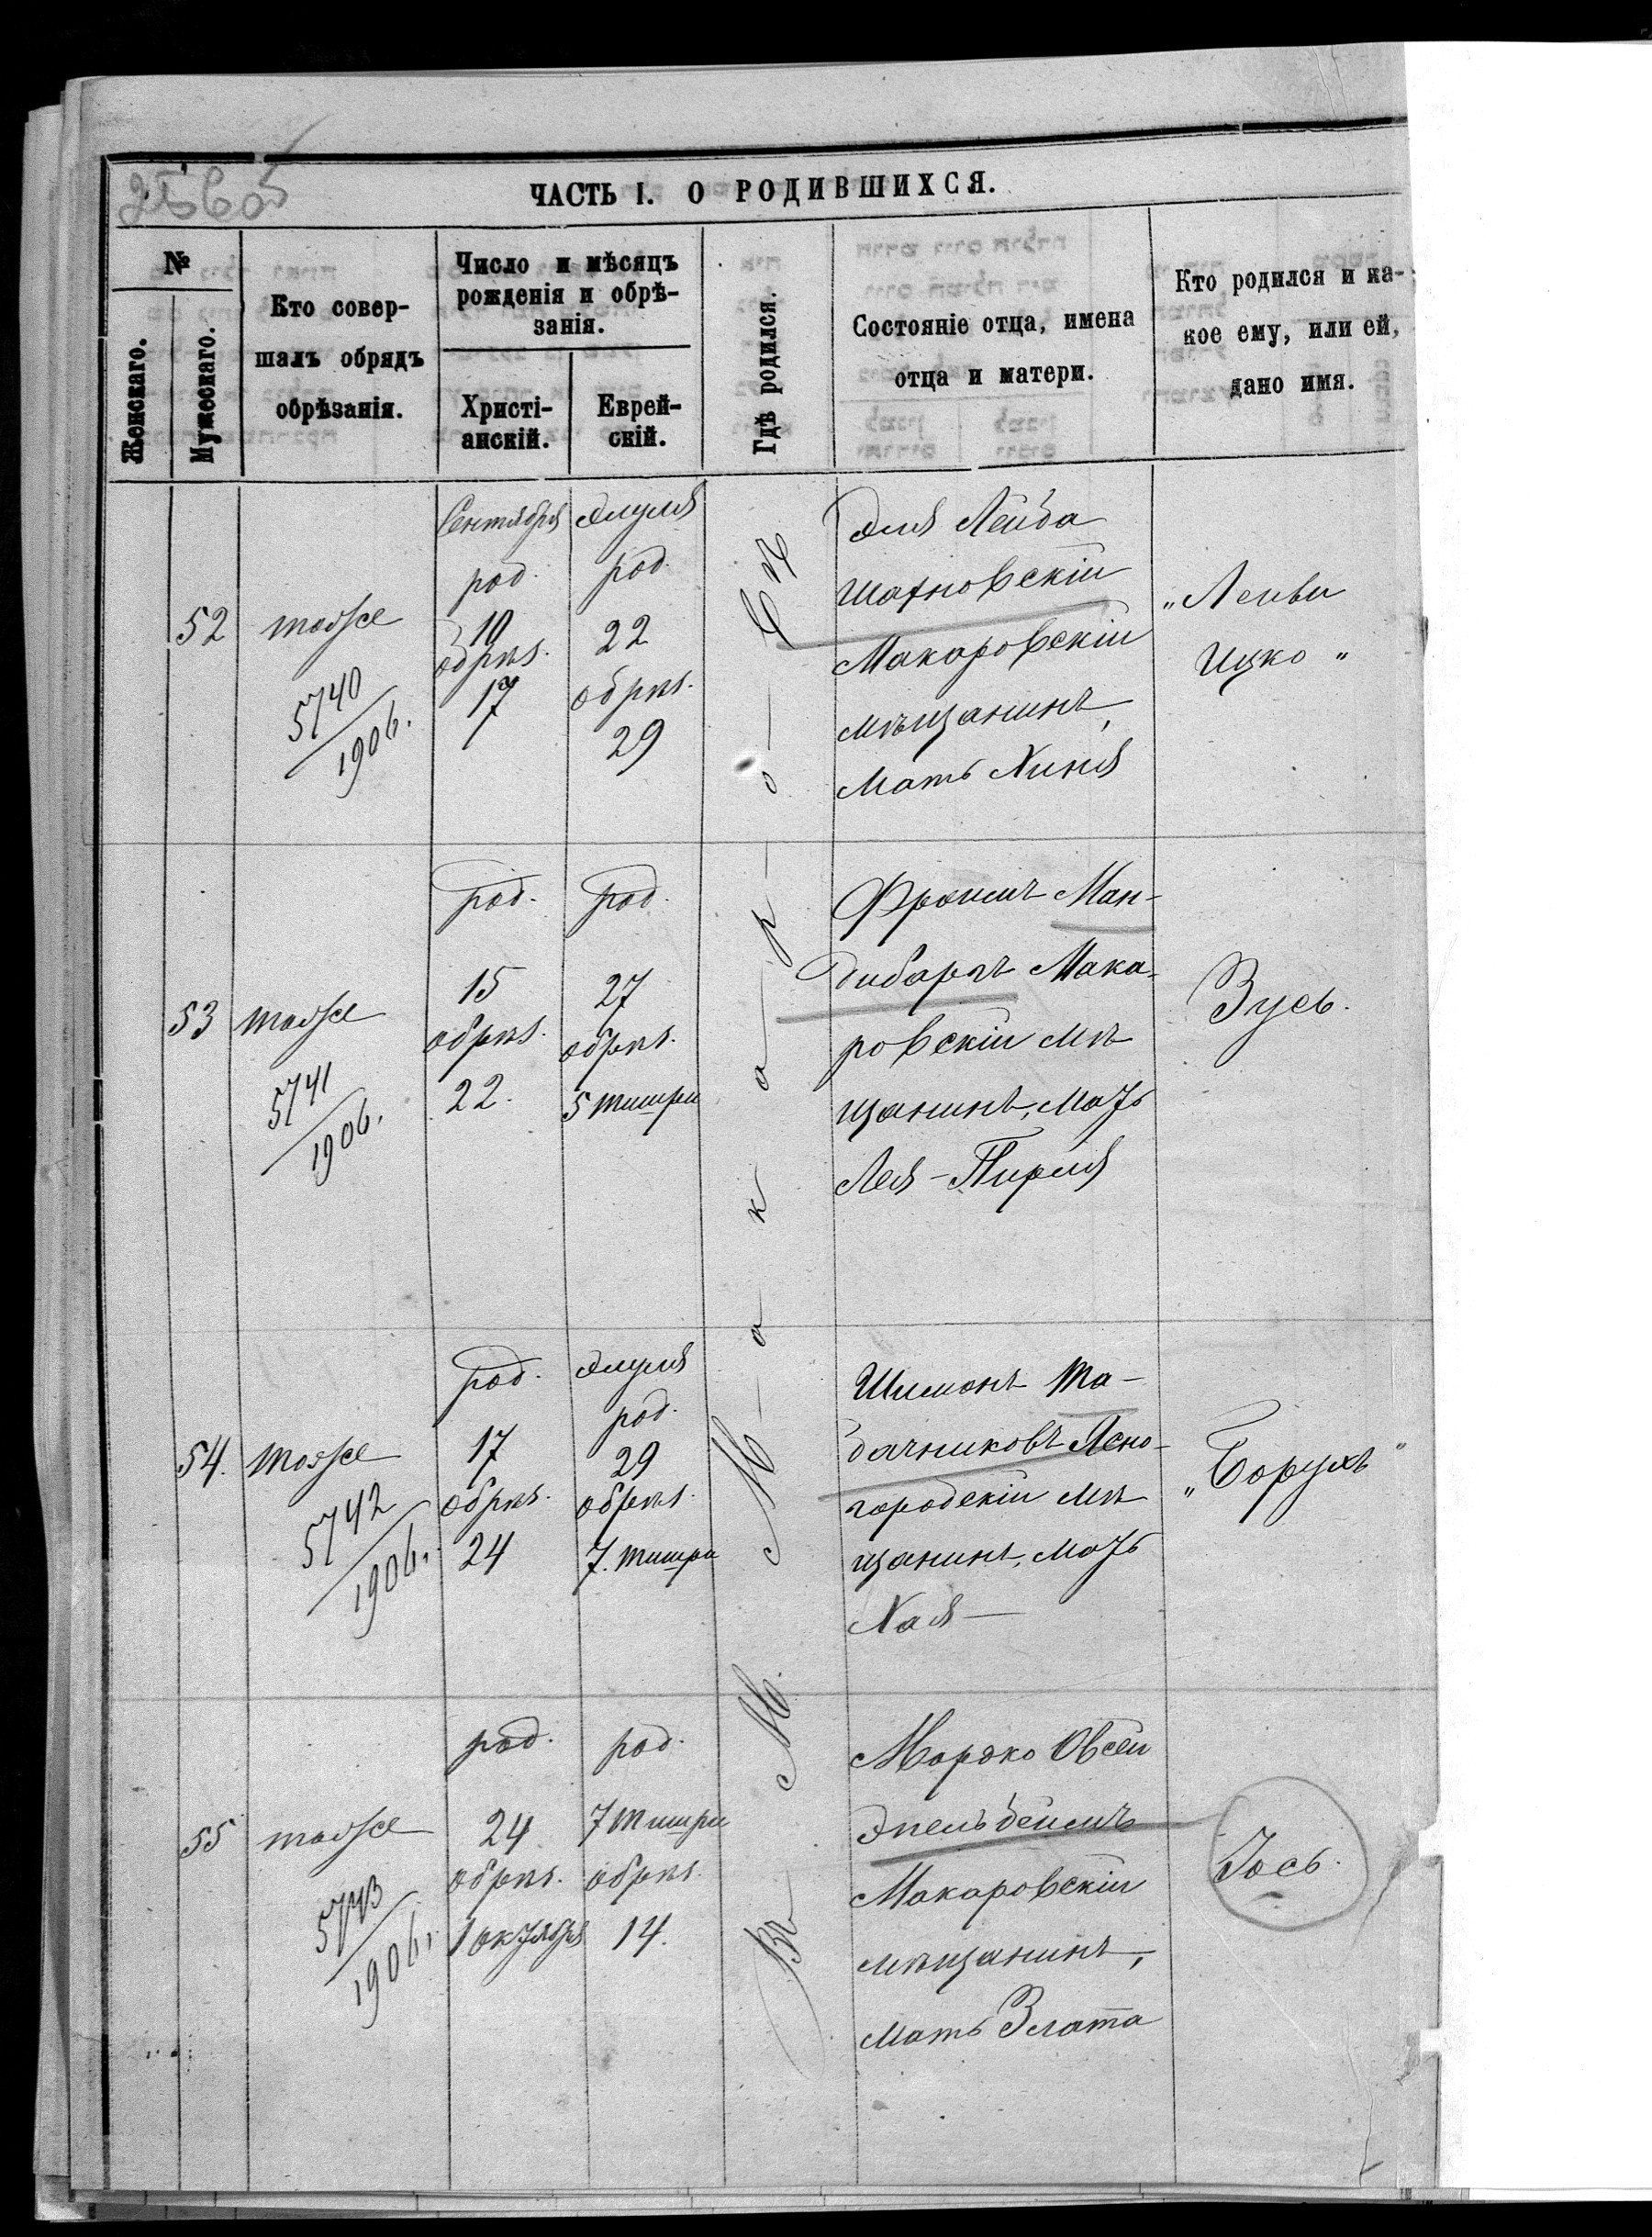 ЧАСТЬ I. О РОДИВШИХСЯ.
№
Женскаго.
Мужескаго.
Кто совер-
шалъ обрядъ
обрѣзанія.
Число и мѣсяцъ
рожденія и обрѣ-
занія.
Христі-
анскій.
Еврей-
скій.
Гдѣ родился.
Состояніе отца, имена
отца и матери.
Кто родился и ка-
кое ему, или ей,
дано имя.
Въ М. Макаровѣ
52
тойже
5740
1906.
Сентября
род.
10
обрѣз.
17
Элуля
род.
22
обрѣз.
29
Эля Лейба
Шахновскій
Макаровскій
мѣщанинъ,
мать Хиня
Ицко "
53
тойже
5741
1906.
род.
15
обрѣз.
22.
род.
27
обрѣз.
5 тишри
Фроимъ Ман-
Мака-
ровскій мѣ
щанинъ, мать
Лея-Пирля
Зусь.
54.
тойже
5742
1906.
род.
17
обрѣз.
24
Элуля
род.
29
обрѣз.
7. тишри
Шимонъ Та-
бачниковъ Ясно-
городскій мѣ
щанинъ, мать
Хая —
"Борухъ"
55
тойже
5743
1906.
род.
24
обрѣз.
1 октября
род.
7 тишри
обрѣз.
14.
Мордко Овсей
Эпельбеймъ
Макаровскій
мѣщанинъ,
мать Злата
Іось.